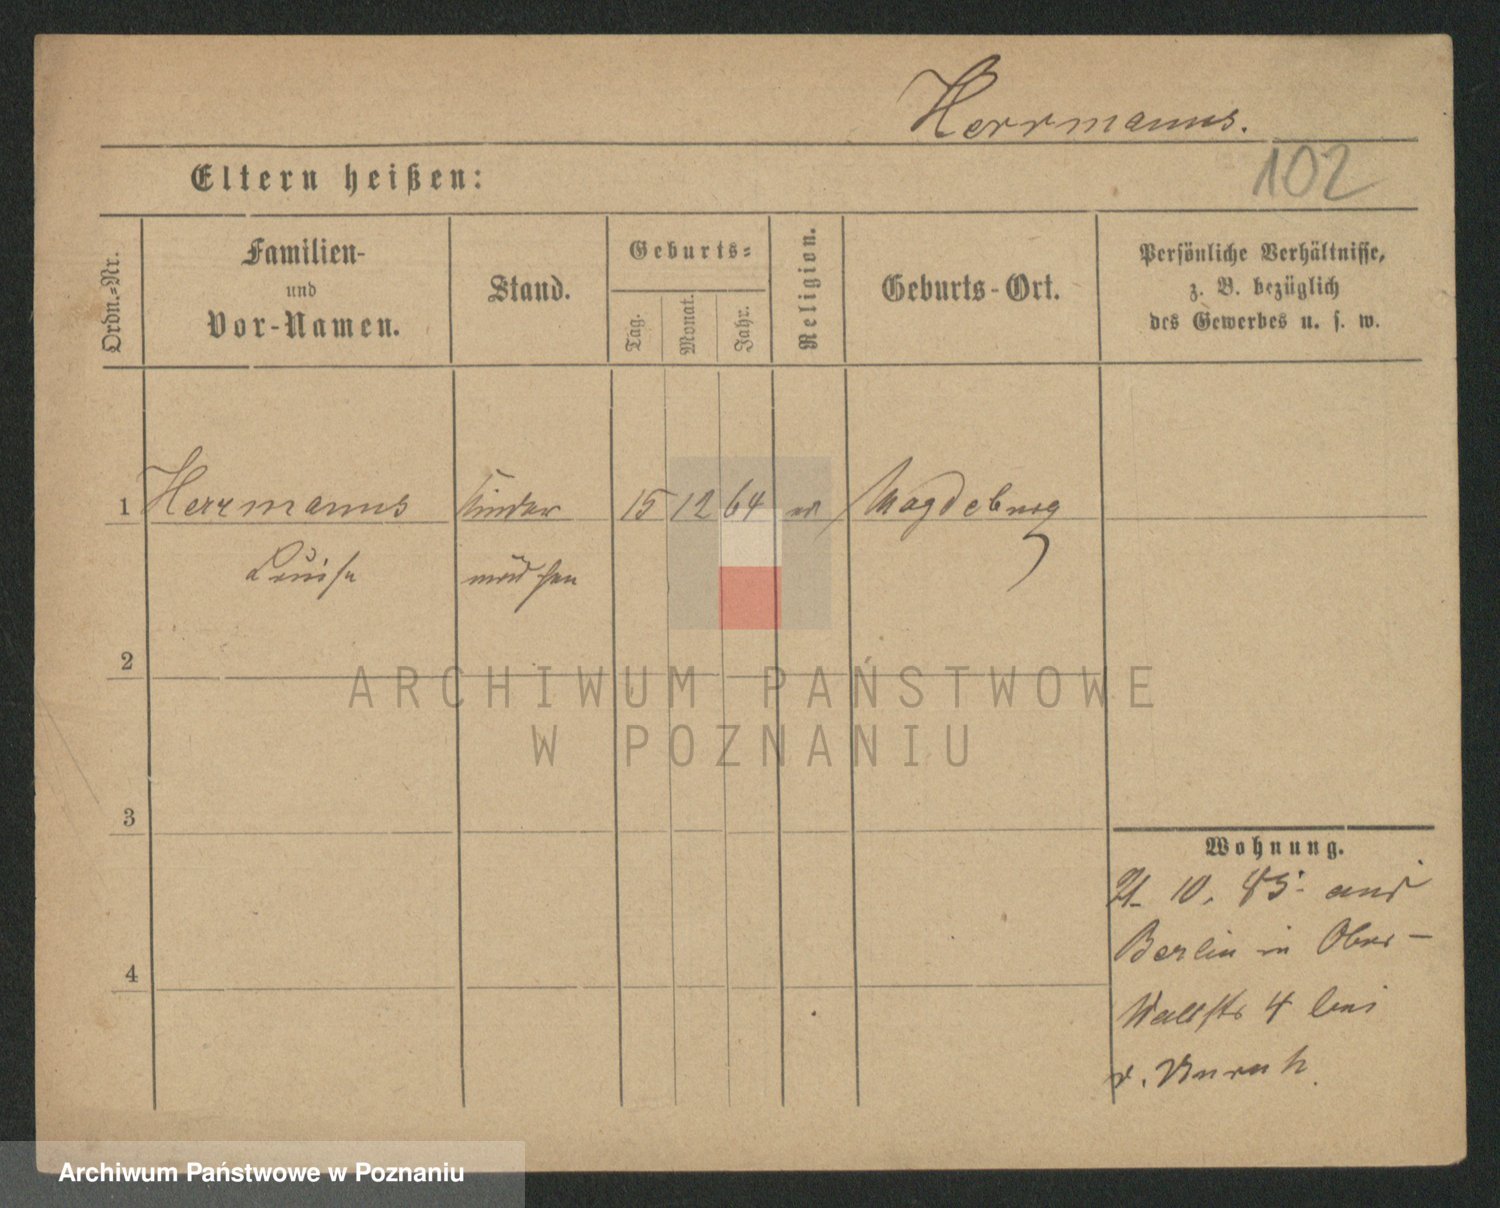 Herrmanns.
102
Eltern heißen:
Ordn.-Nr.
Familien-
und
Vor-Namen.
Stand.
Geburts-
Tag.
Monat.
Jahr.
Religion.
Geburts-Ort.
Persönliche Verhältnisse,
z. B. bezüglich
des Gewerbes u. s. w.
1 Herrmanns Kinder 15 12 64 ev Magdeburg
Louise mädchen
2
3
4
Wohnung.
10. 85. aus
Berlin in Ober-
Wallstr 4 bei
v. Unruh
ARCHIWUM PAŃSTWOWE
W POZNANIU
Archiwum Państwowe w Poznaniu